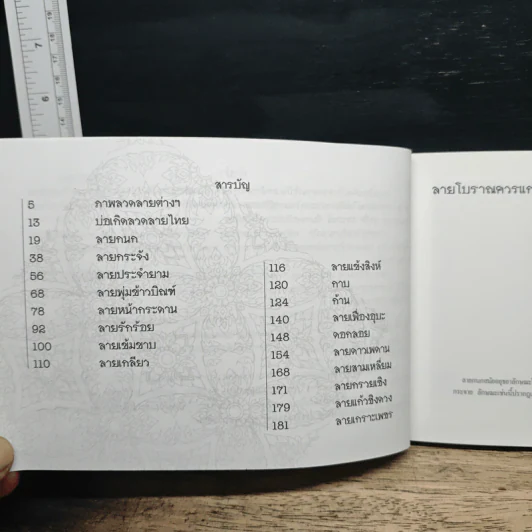 สารบัญ
5 ภาพลวดลายต่างๆ
13 บ่อเกิดลวดลายไทย
19 ลายกนก
38 ลายกระจัง
56 ลายประจำยาม
68 ลายพุ่มข้าวบิณฑ์
78 ลายหน้ากระดาน
92 ลายรักร้อย
100 ลายเข้มขาบ
110 ลายเกลียว
116 ลายแข้งสิงห์
120 กาบ
124 ก้าน
140 ลายเฟื่องอุบะ
148 ดอกลอย
154 ลายดาวเพดาน
168 ลายสามเหลี่ยม
171 ลายกรวยเชิง
179 ลายแก้วชิงดวง
181 ลายเกราะเพชร
ลายโบราณควรแก
7
6